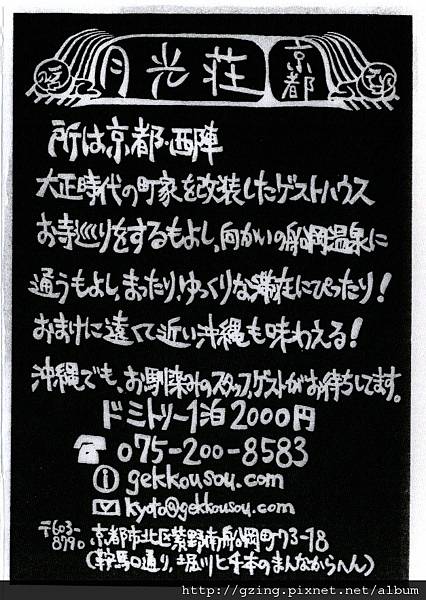 月光荘 京都
所は京都・西陣
大正時代の町家を改装したゲストハウス
お寺巡りをするもよし、向かいの船岡温泉に
通うもよし、まったり、ゆっくりな滞在にぴったり!
おまけに遠くて近い沖縄も味わえる!
沖縄でも、お馴染みのスタッフ、ゲストがお待ちしてます。
ドミトリー1泊 2000円
☎ 075-200-8583
ⓘ gekkousou.com
✉ kyoto@gekkousou.com
〒603-8790 京都市北区紫野南舟岡町73-18
(鞍馬口通り、堀川と千本のまんなからへん)
http://gzing.pixnet.net/album